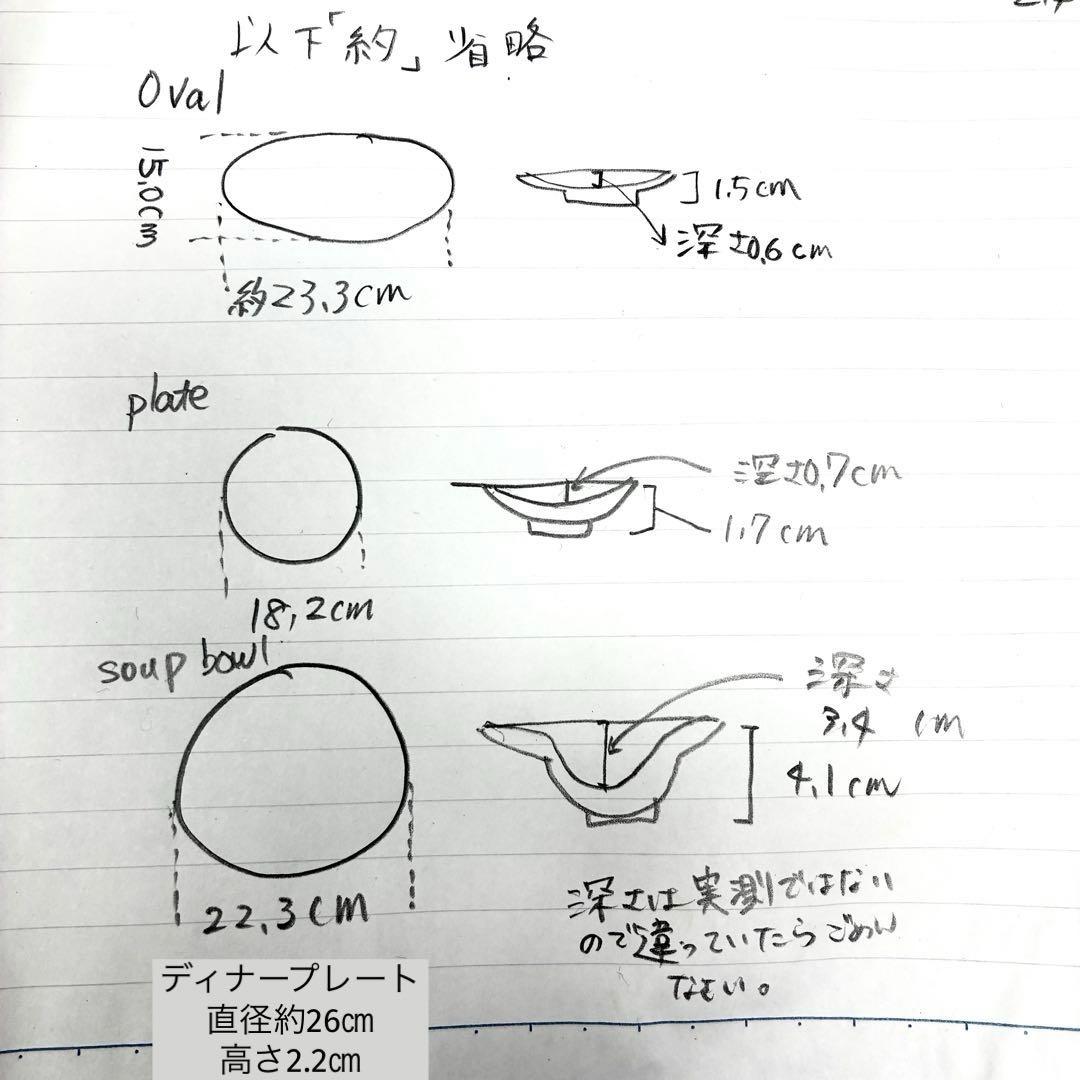 以下「約」省略
Oval
15.0cm
1.5cm
深さ0.6cm
約23.3cm
plate
深さ0.7cm
1.7cm
18.2cm
soup bowl
深さ
3.4 cm
4.1cm
22.3cm
深さは実測ではない
ので違っていたらごめん
なさい。
ディナープレート
直径約26㎝
高さ2.2㎝